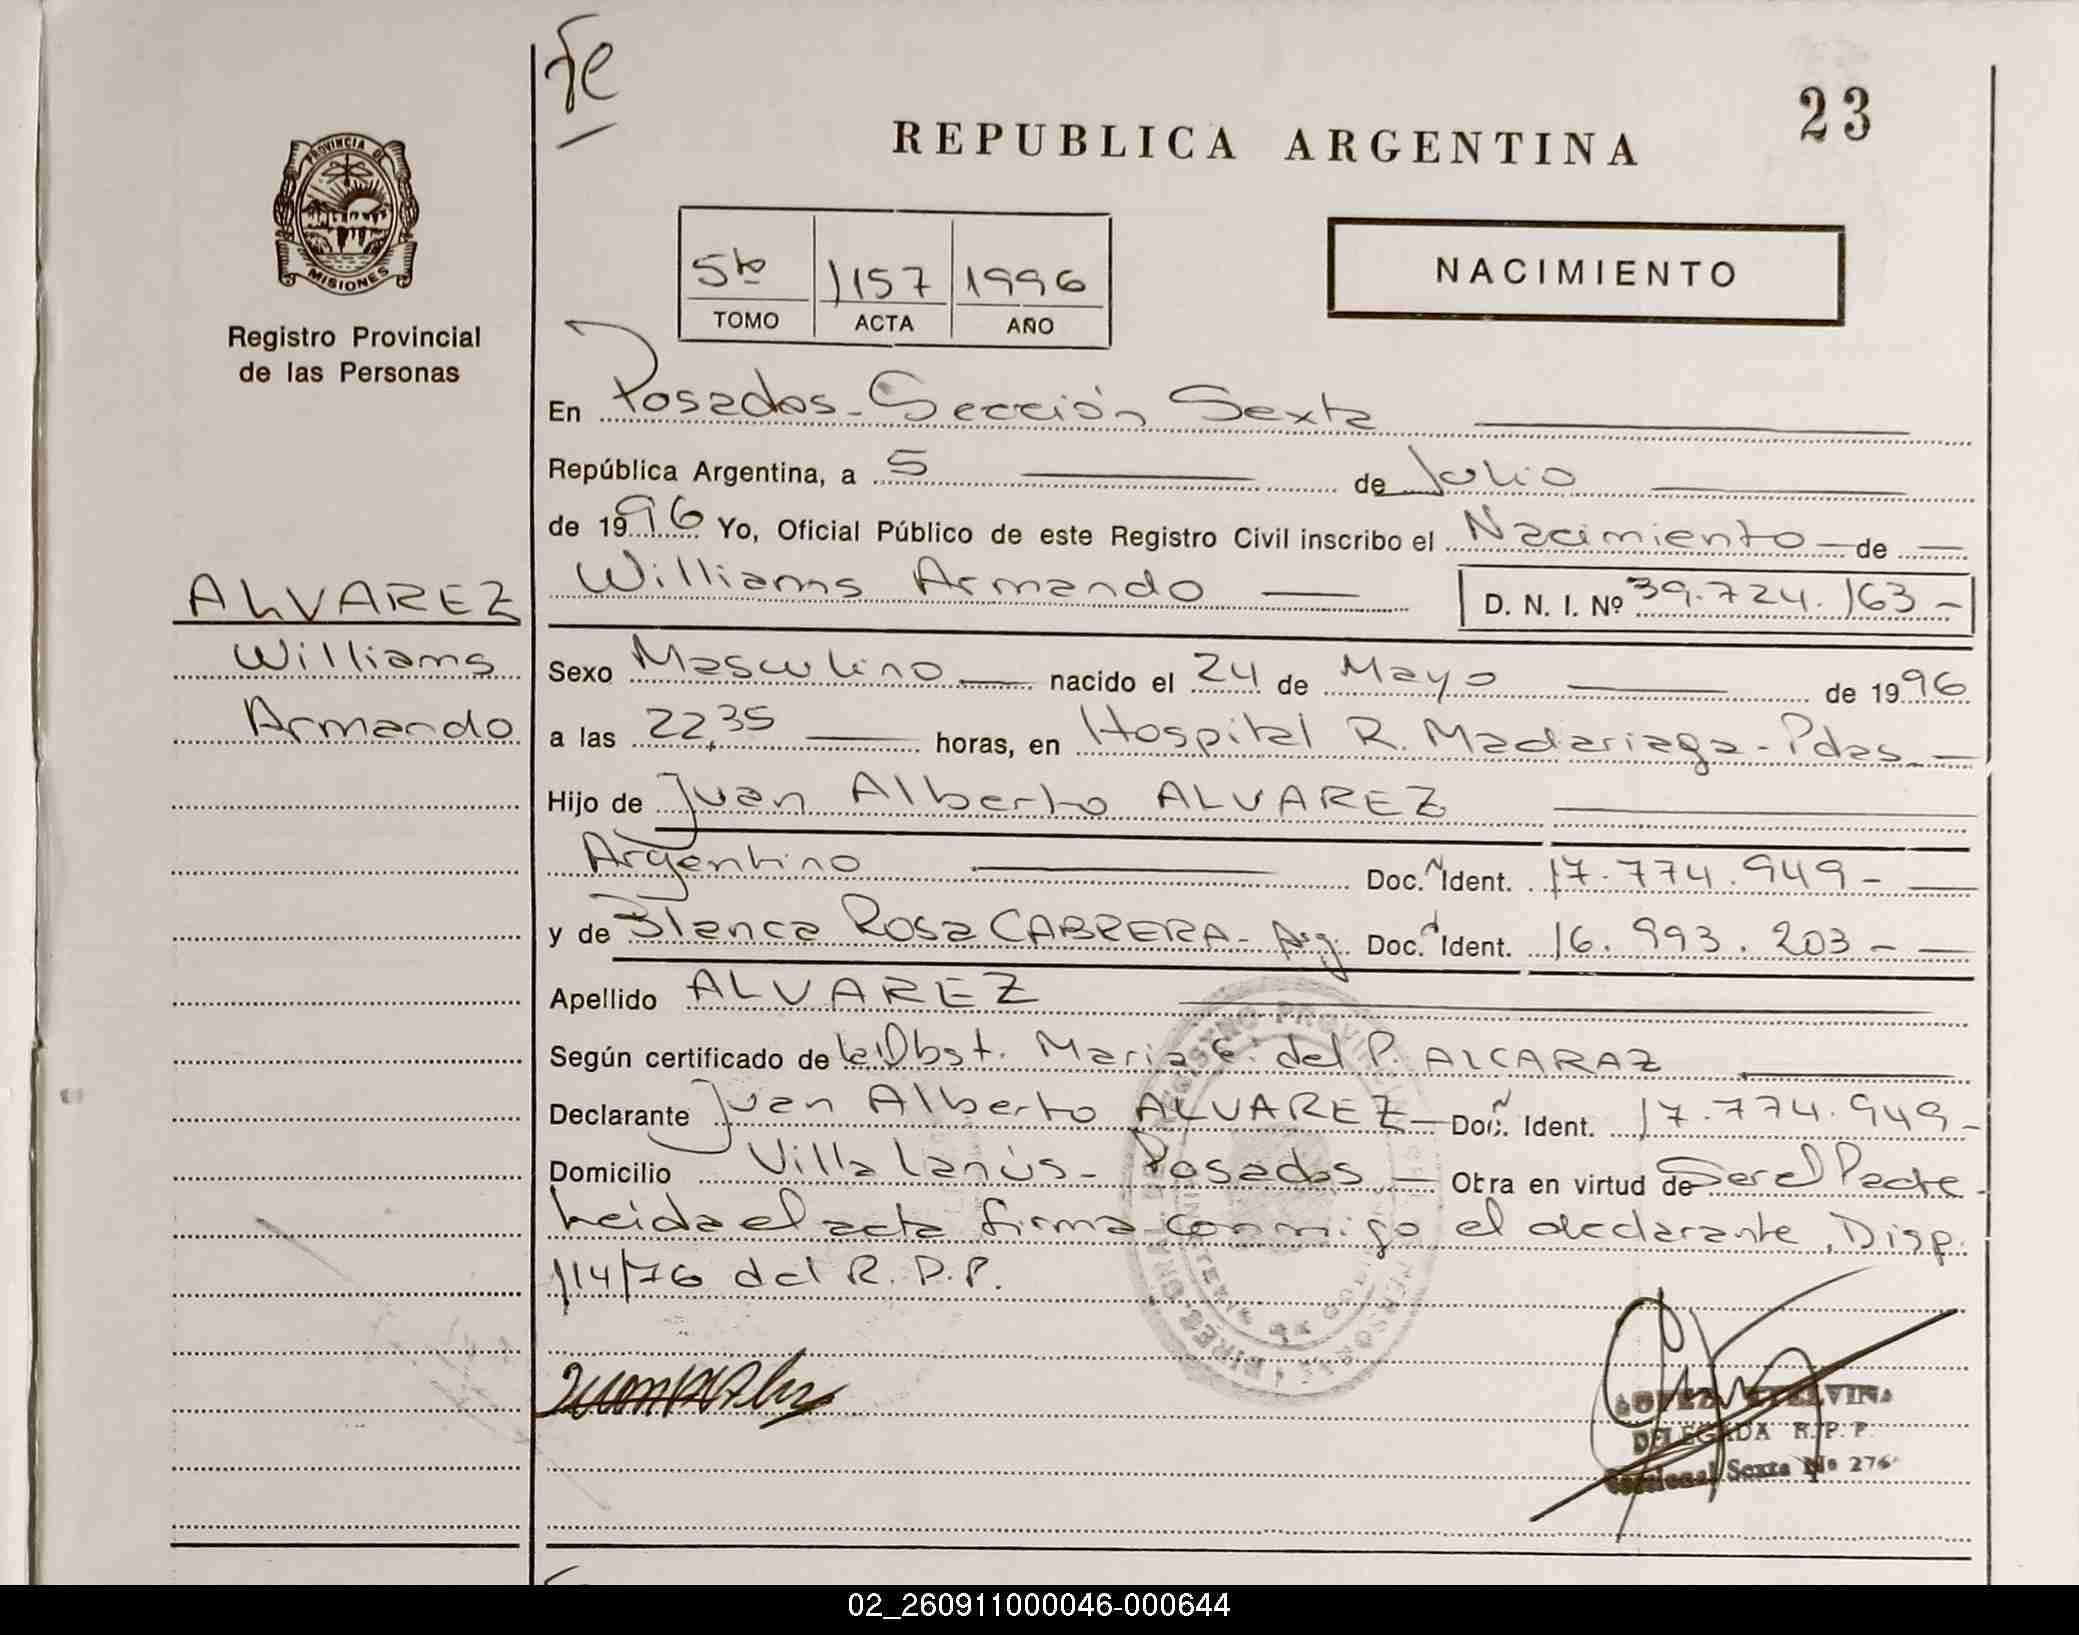 Fe
23
REPUBLICA ARGENTINA
PROVINCIA DE
MISIONES
Registro Provincial
de las Personas
5to 1157 1996
TOMO ACTA AÑO
NACIMIENTO
En Posadas - Sección Sexta
República Argentina, a 5 de Julio
de 1996 Yo, Oficial Público de este Registro Civil inscribo el Nacimiento de
ALVAREZ
Williams
Armando
Williams Armando D. N. I. Nº 39.724.163 -
Sexo Masculino nacido el 24 de Mayo de 1996
a las 22,35 horas, en Hospital R. Madariaga - Pdas.
Hijo de Juan Alberto ALVAREZ
Argentino Doc. N Ident. 17.774.949 -
y de Blanca Rosa CABRERA - Arg. Doc. Ident. 16.993.203 -
Apellido ALVAREZ
Según certificado de la Obst. Maria E. del P. ALCARAZ
Declarante Juan Alberto ALVAREZ Doc. N Ident. 17.774.949 -
Domicilio Villa Lanús - Posadas Otra en virtud de Ser el Padre -
Leida el acta firma conmigo el declarante, Disp.
114/76 del R.P.P.
DELEGADA R.P.P.
Seccional Sexta Nº 276
02_260911000046-000644